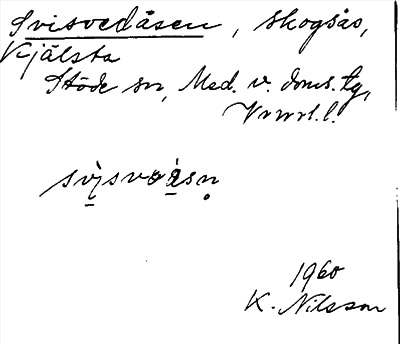 Svisvedåsen, skogsås,
Kjälsta
Stöde sn, Med. v. doms. tg,
Vnrrl. l.
svisvəåsn̥
1960
K. Nilsson